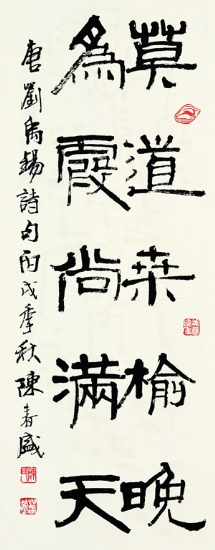 莫道桒榆晚
為霞尚滿天
唐劉禹錫詩句丙戌季秋陳春盛